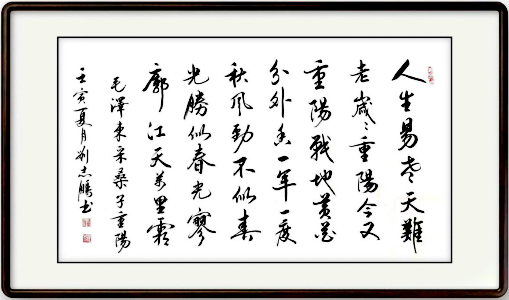 人生易老天難
老歲歲重陽今又
重陽戰地黄花
分外香一年一度
秋風勁不似春
光勝似春光寥
廓江天萬里霜
毛澤東采桑子重陽
壬寅夏月劉志鵬書